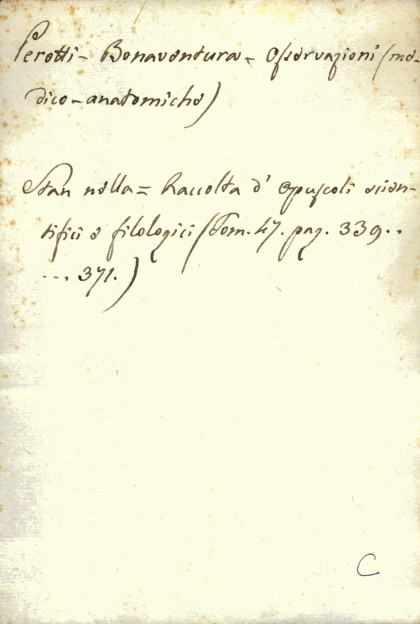 Perotti - Bonaventura = Osservazioni (me-
dico-anatomiche)
Stan nella = Raccolta d' Opuscoli scien-
tifici e filologici (Tom. 47. pag. 339..
... 371.)
C